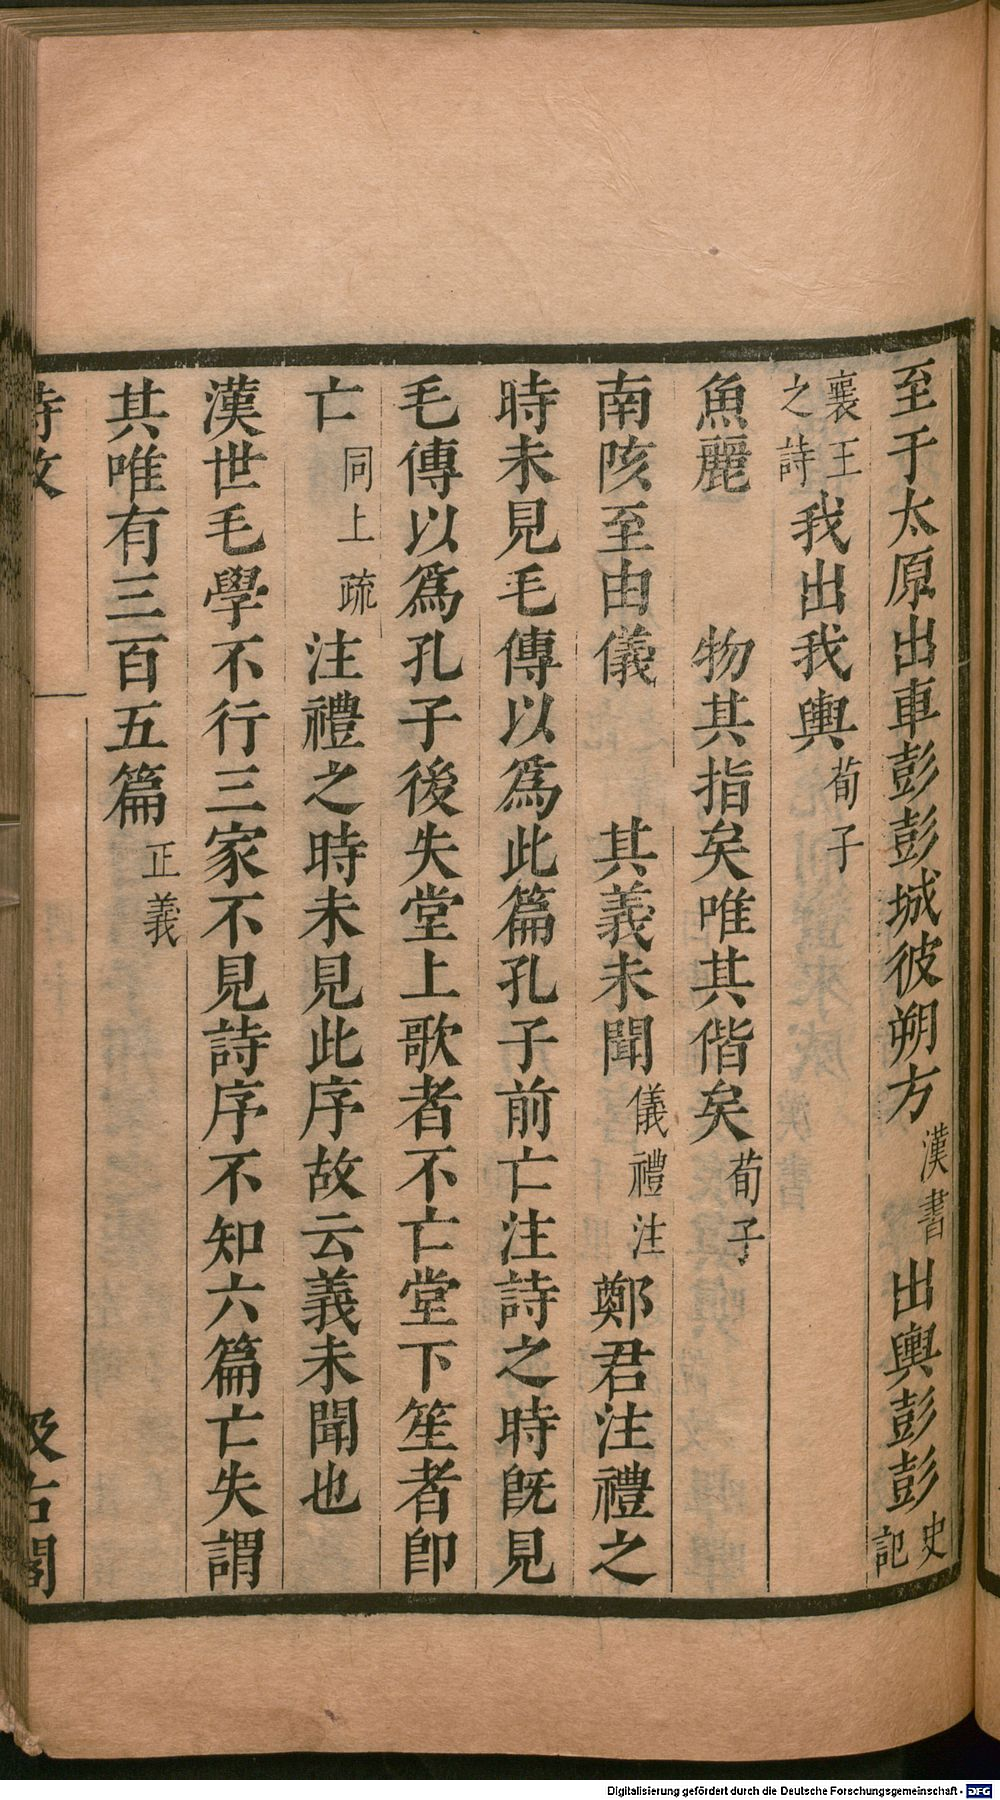 至于太原出車彭彭城彼朔方漢書出輿彭彭史記
襄王之詩我出我輿荀子
魚麗　物其指矣唯其偕矣荀子
南陔至由儀　其義未聞儀禮注鄭君注禮之
時未見毛傳以爲此篇孔子前亡注詩之時旣見
毛傳以爲孔子後失堂上歌者不亡堂下笙者卽
亡同上疏注禮之時未見此序故云義未聞也
漢世毛學不行三家不見詩序不知六篇亡失謂
其唯有三百五篇正義
詩攷
汲古閣
Digitalisierung gefördert durch die Deutsche Forschungsgemeinschaft - DFG